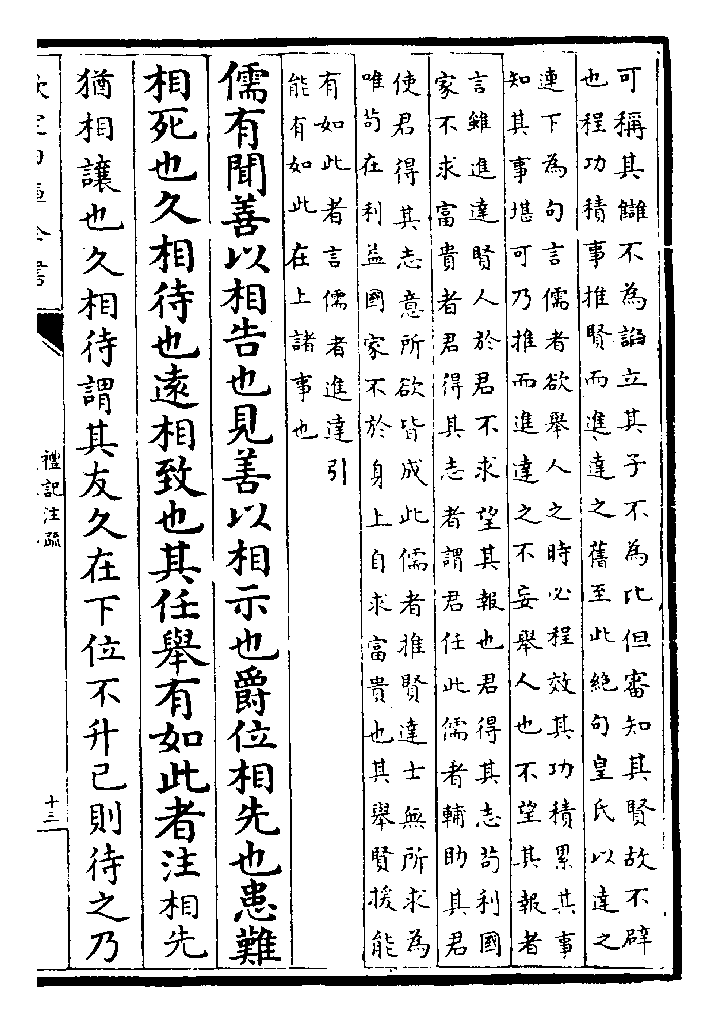 可稱其讎不為諂立其子不為比但審知其賢故不辟
也程功積事推賢而進達之舊至此絶句皇氏以達之
連下為句言儒者欲舉人之時必程效其功積累其事
知其事堪可乃推而進達之不妄舉人也不望其報者
言雖進達賢人於君不求望其報也君得其志苟利國
家不求富貴者君得其志者謂君任此儒者輔助其君
使君得其志意所欲皆成此儒者推賢達士無所求為
唯苟在利益國家不於身上自求富貴也其舉賢援能
有如此者言儒者進達引
能有如此在上諸事也
儒有聞善以相告也見善以相示也爵位相先也患難
相死也久相待也逺相致也其任舉有如此者注相先
猶相讓也久相待謂其友久在下位不升己則待之乃
禮記注疏
十三